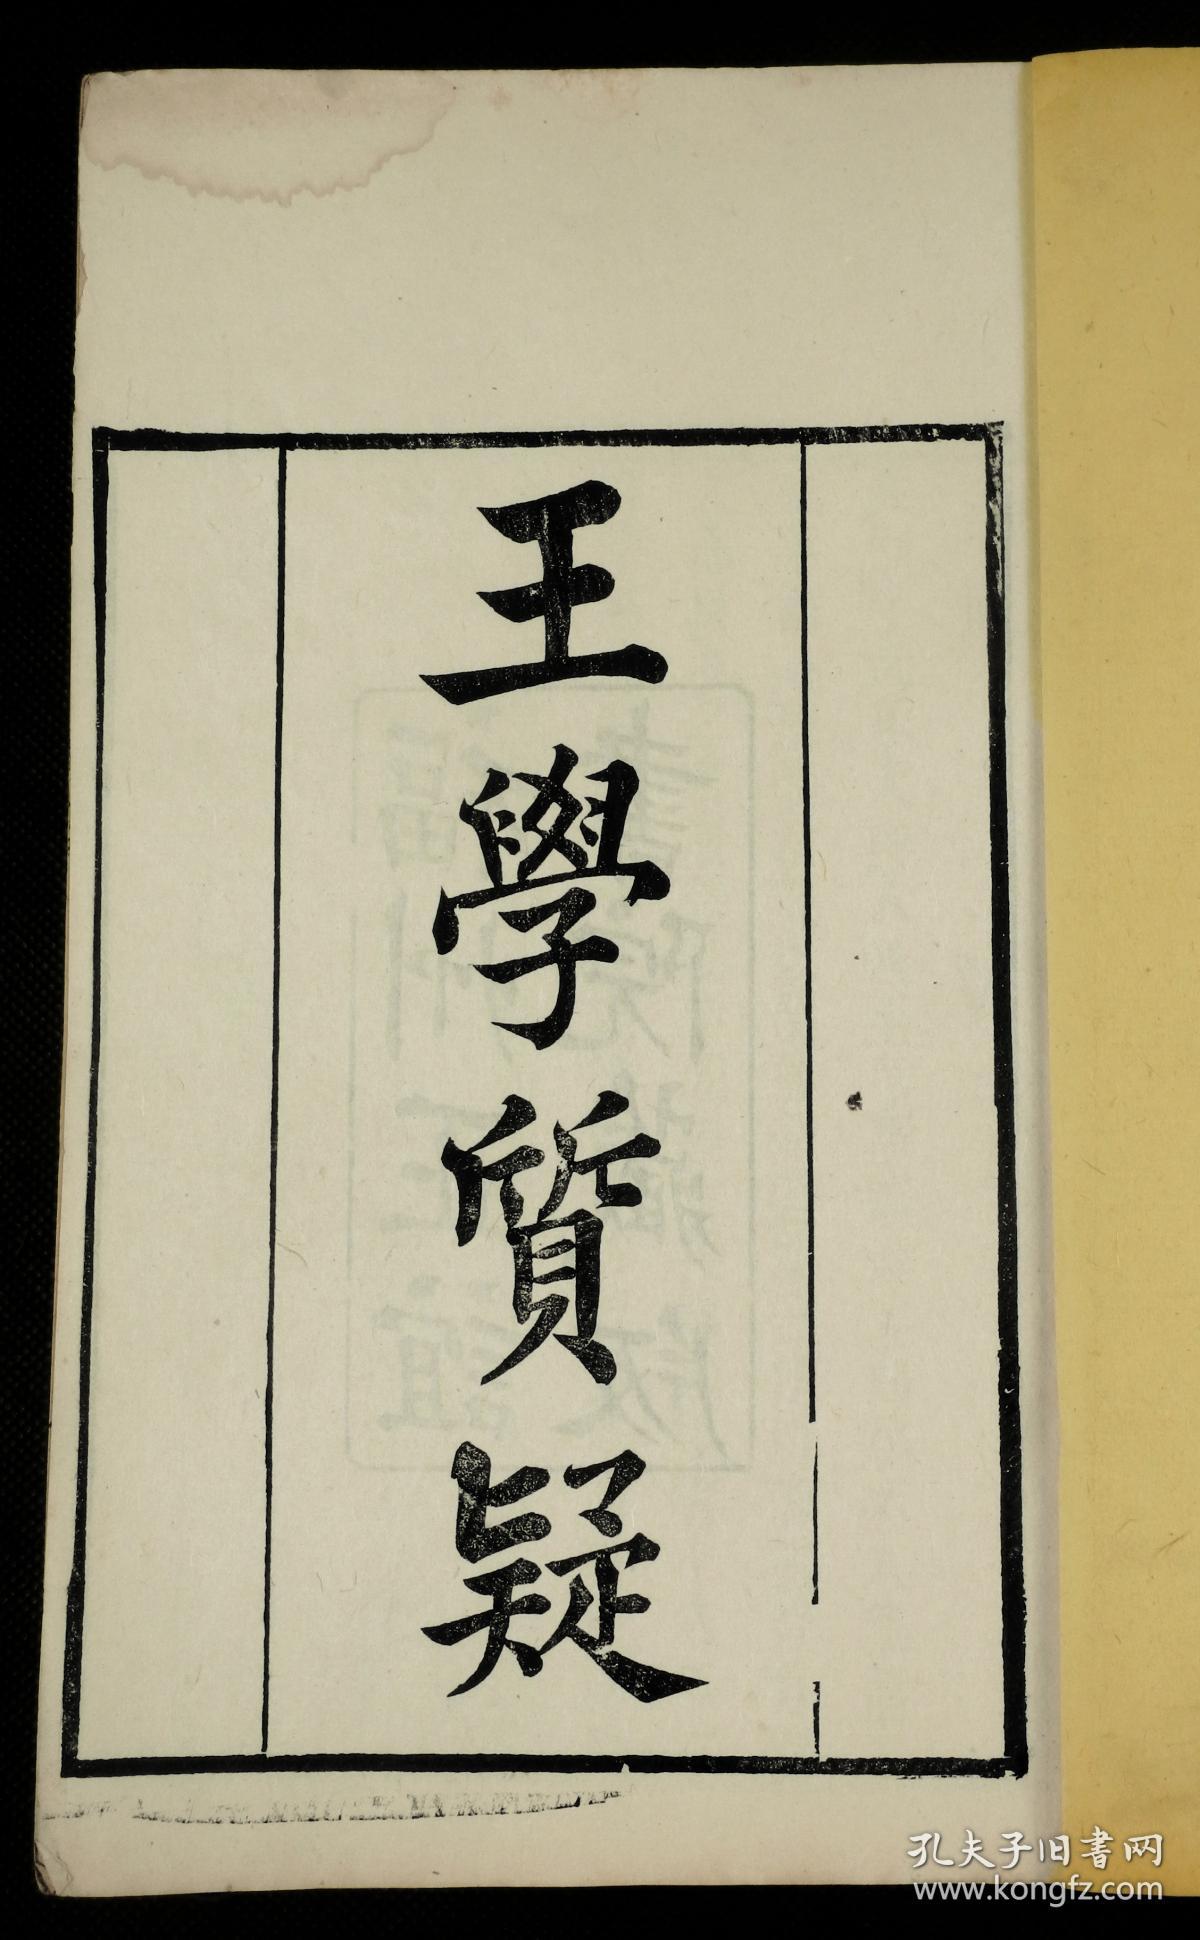 王學質疑
孔夫子旧書网
www.kongfz.com